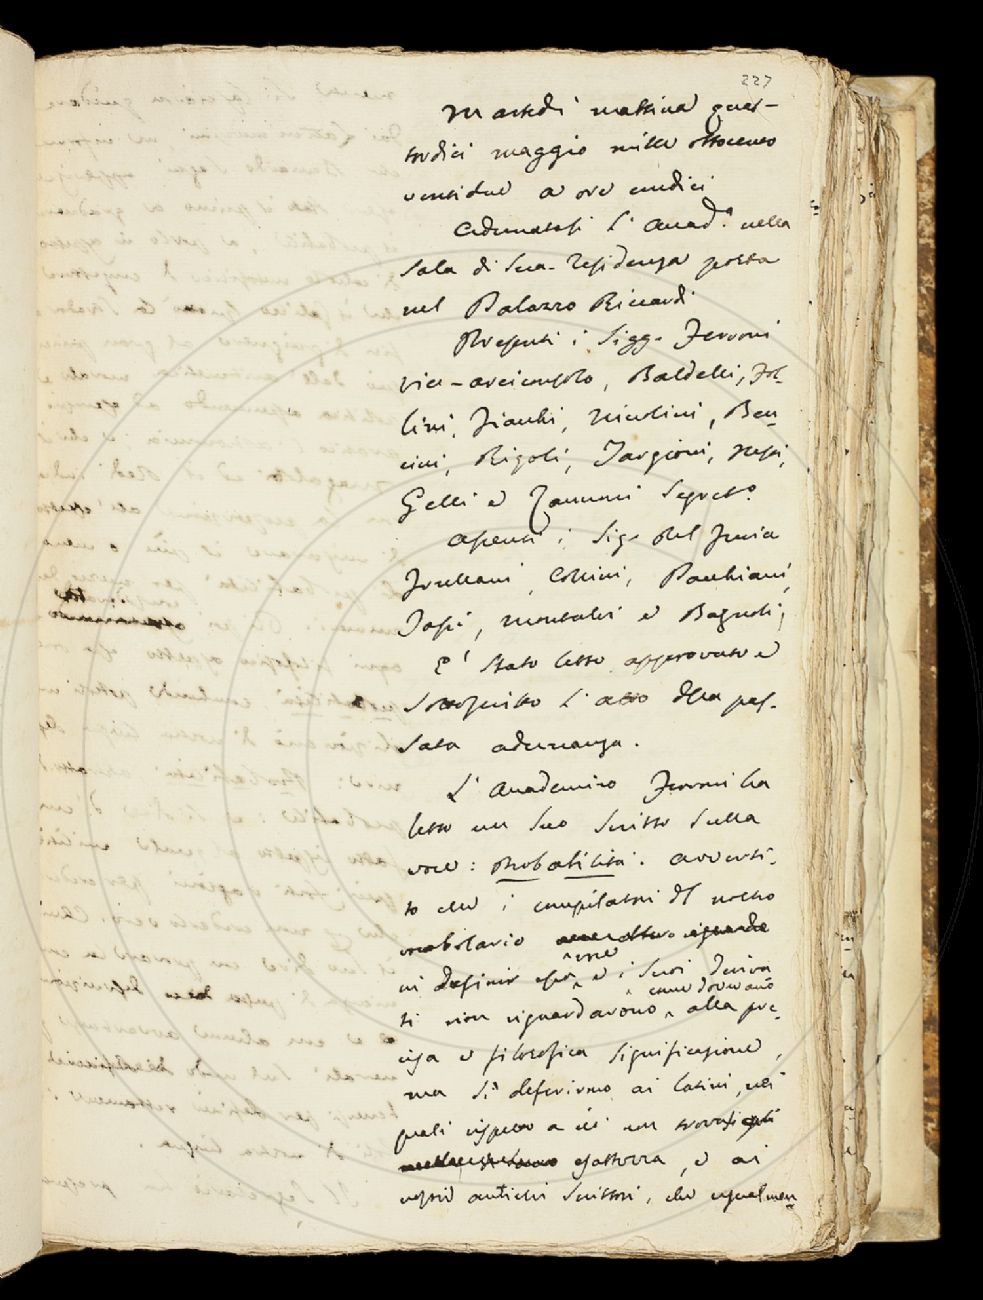 227
Martedì mattina quat-
tordici maggio mille ottocento
ventidue a ore undici
Adunatasi l'Accad.ª nella
Sala di sua Residenza posta
nel Palazzo Riccardi
Presenti i Sigg. Ferroni
vice-arciconsolo, Baldelli, Fol-
lini, Fiacchi, Niccolini, Ben-
cini, Rigoli, Targioni, Nesi,
Gelli e Zannoni Segret.º
Assenti i Sig. Del Furia
Frullani, Collini, Pacchiani,
Tassi, Montalvi e Bagnoli,
E' stato letto approvato e
sottoscritto l'atto della pas-
sata adunanza.
L'Accademico Ferroni ha
letto un suo scritto sulla
voce: Probabilità. Avverti-
to che i compilatori del nostro
vocabolario
in definir essa voce e i suoi deriva
ti non riguardarono come dovevano alla pre-
cisa e filosofica significazione,
ma si deferirono ai latini, nei
quali rispetto a ciò non trovasi
esattezza, e ai
nostri antichi scrittori, che egualmen